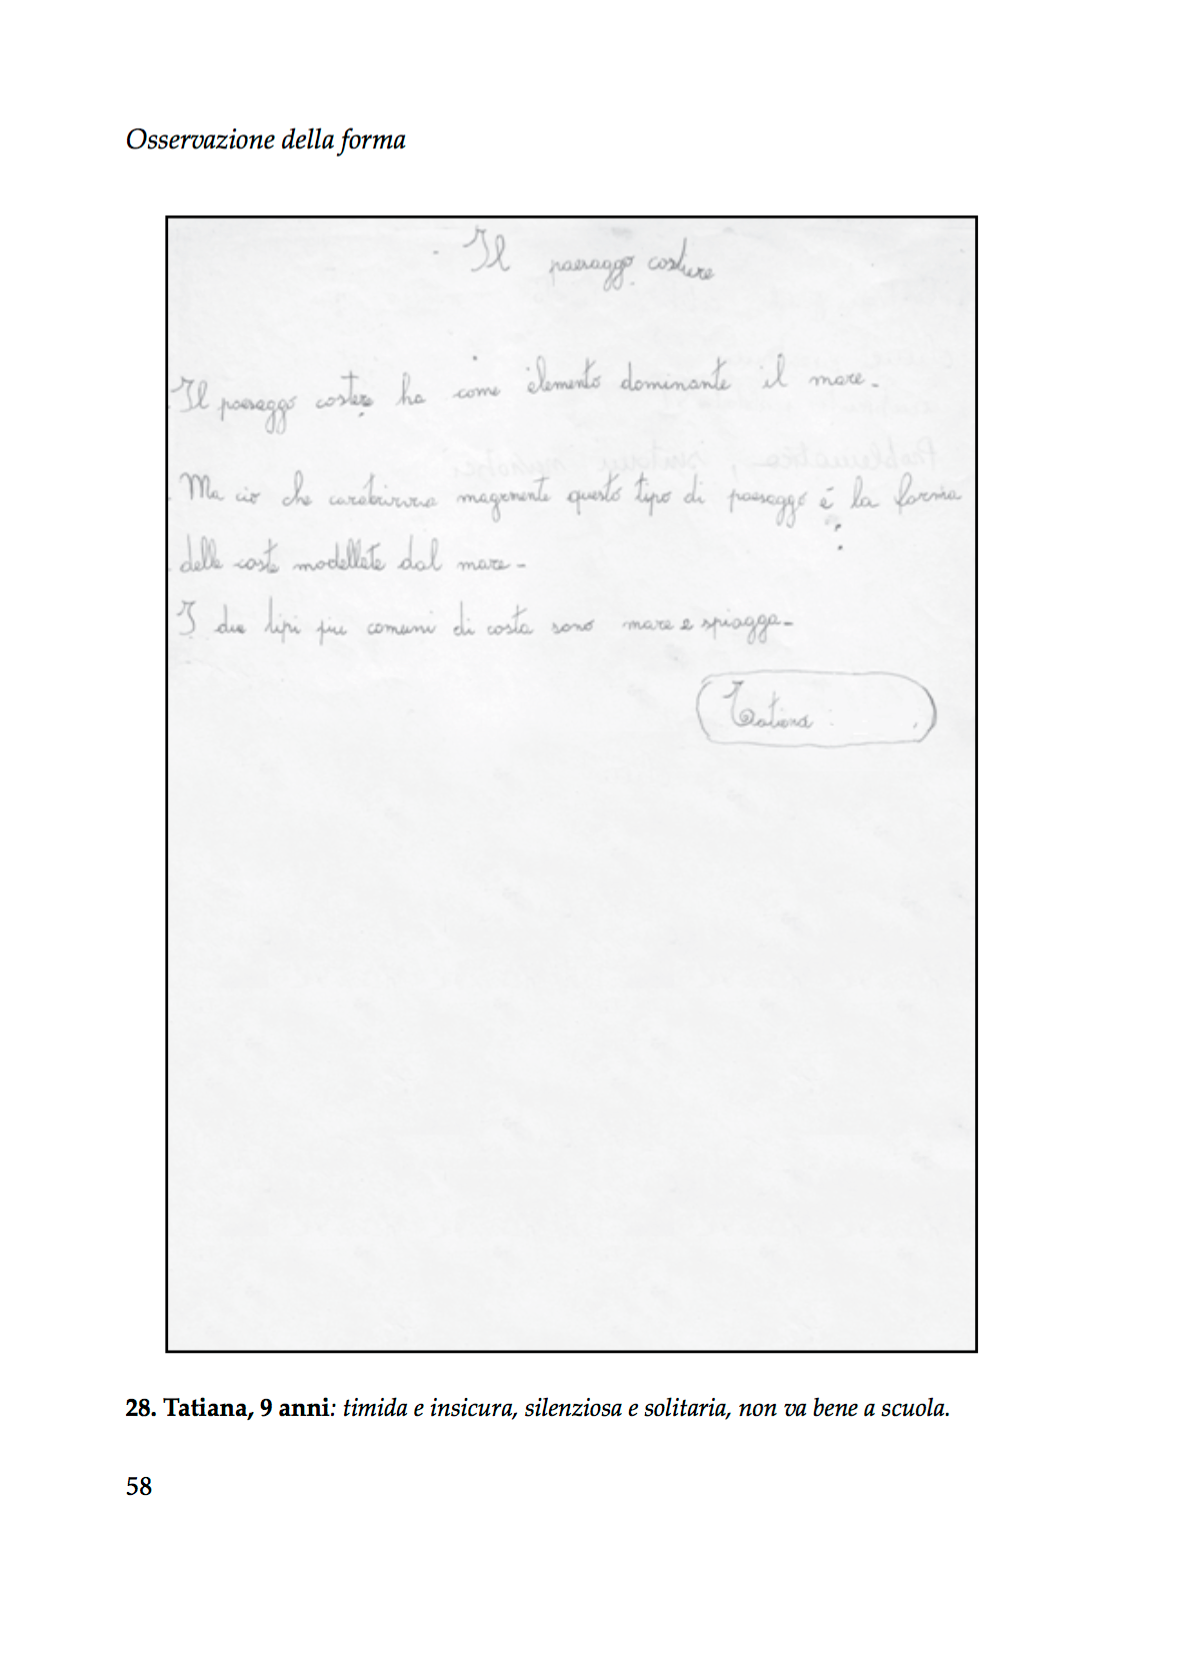 Osservazione della forma
Il paesaggo costiere
Il paesaggo costere ha come elemento dominante il mare-
Ma ciò che magemente questo tipo di paesaggo é la forma
delle coste modellete dal mare-
I due tipi piu comuni di costa sono mare e spiagga-
Tatiana
28. Tatiana, 9 anni: timida e insicura, silenziosa e solitaria, non va bene a scuola.
58